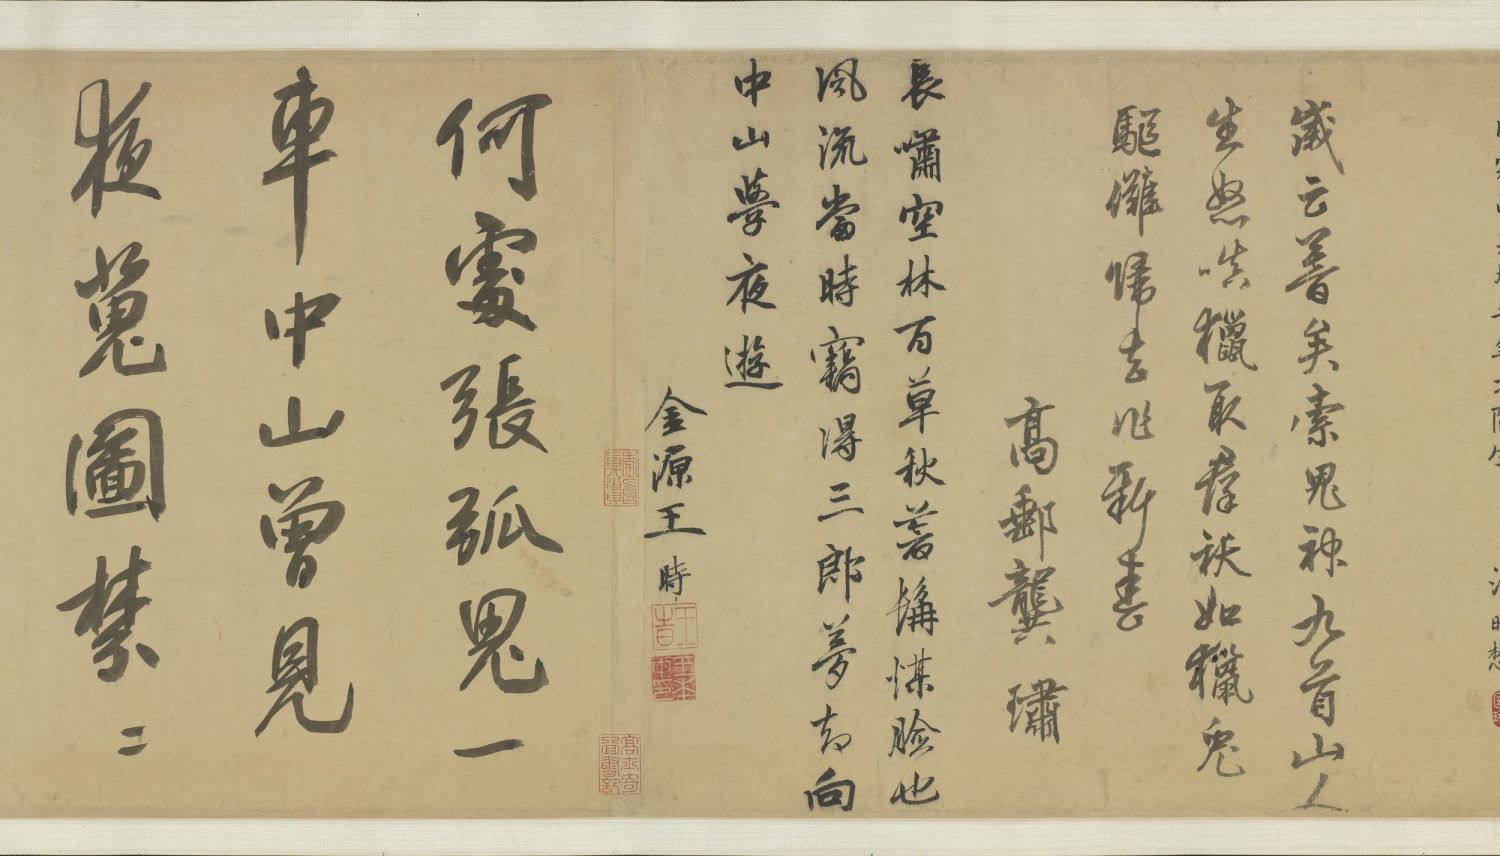 歲云暮矣索鬼神九首山人
生怒嗔獵取群祅如獵兔
驅儺歸去作新春
高郵龔璛
長嘯空林百草秋煤臉也
風流當時竊得三郎夢却向
中山學夜遊
金源王時
何處張弧鬼一
車中山曾見
夜蒐圖禁二